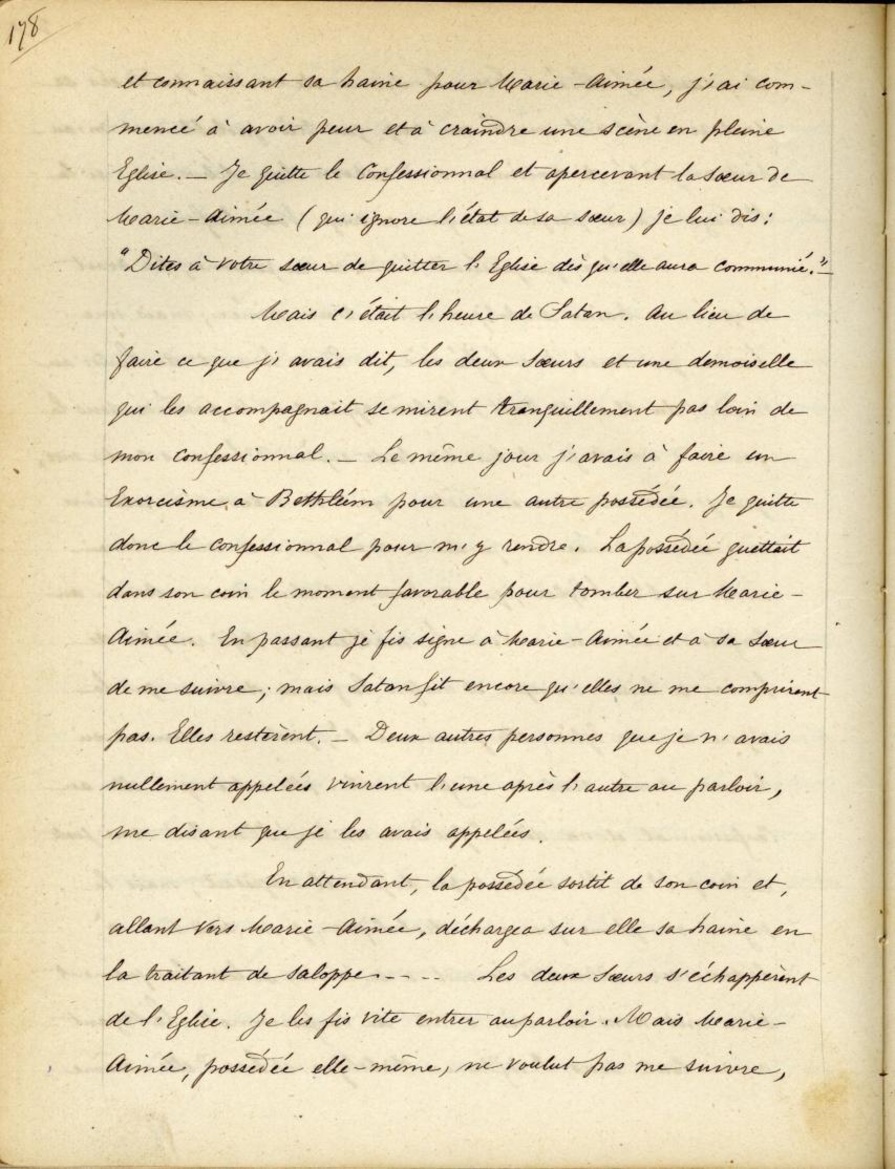 178
et connaissant sa haine pour Marie-Aimée, j'ai com-
mencé à avoir peur et à craindre une scène en pleine
Eglise. — Je quitte le Confessionnal et apercevant la sœur de
Marie-Aimée (qui ignore l'état de sa sœur) je lui dis:
"Dites à votre sœur de quitter l'Eglise dès qu'elle aura communié." —
Mais c'était l'heure de Satan. Au lieu de
faire ce que j'avais dit, les deux sœurs et une demoiselle
qui les accompagnait se mirent tranquillement pas loin de
mon confessionnal. — Le même jour j'avais à faire un
Exorcisme à Bethléem pour une autre possédée. Je quitte
donc le confessionnal pour m'y rendre. La possédée guettait
dans son coin le moment favorable pour tomber sur Marie-
Aimée. En passant je fis signe à Marie-Aimée et à sa sœur
de me suivre; mais Satan fit encore qu'elles ne me comprirent
pas. Elles restèrent. — Deux autres personnes que je n'avais
nullement appelées vinrent l'une après l'autre au parloir,
me disant que je les avais appelées.
En attendant, la possédée sortit de son coin et,
allant vers Marie-Aimée, déchargea sur elle sa haine en
la traitant de saloppe---- Les deux sœurs s'échappèrent
de l'Eglise. Je les fis vite entrer au parloir. Mais Marie-
Aimée, possédée elle-même, ne voulut pas me suivre,